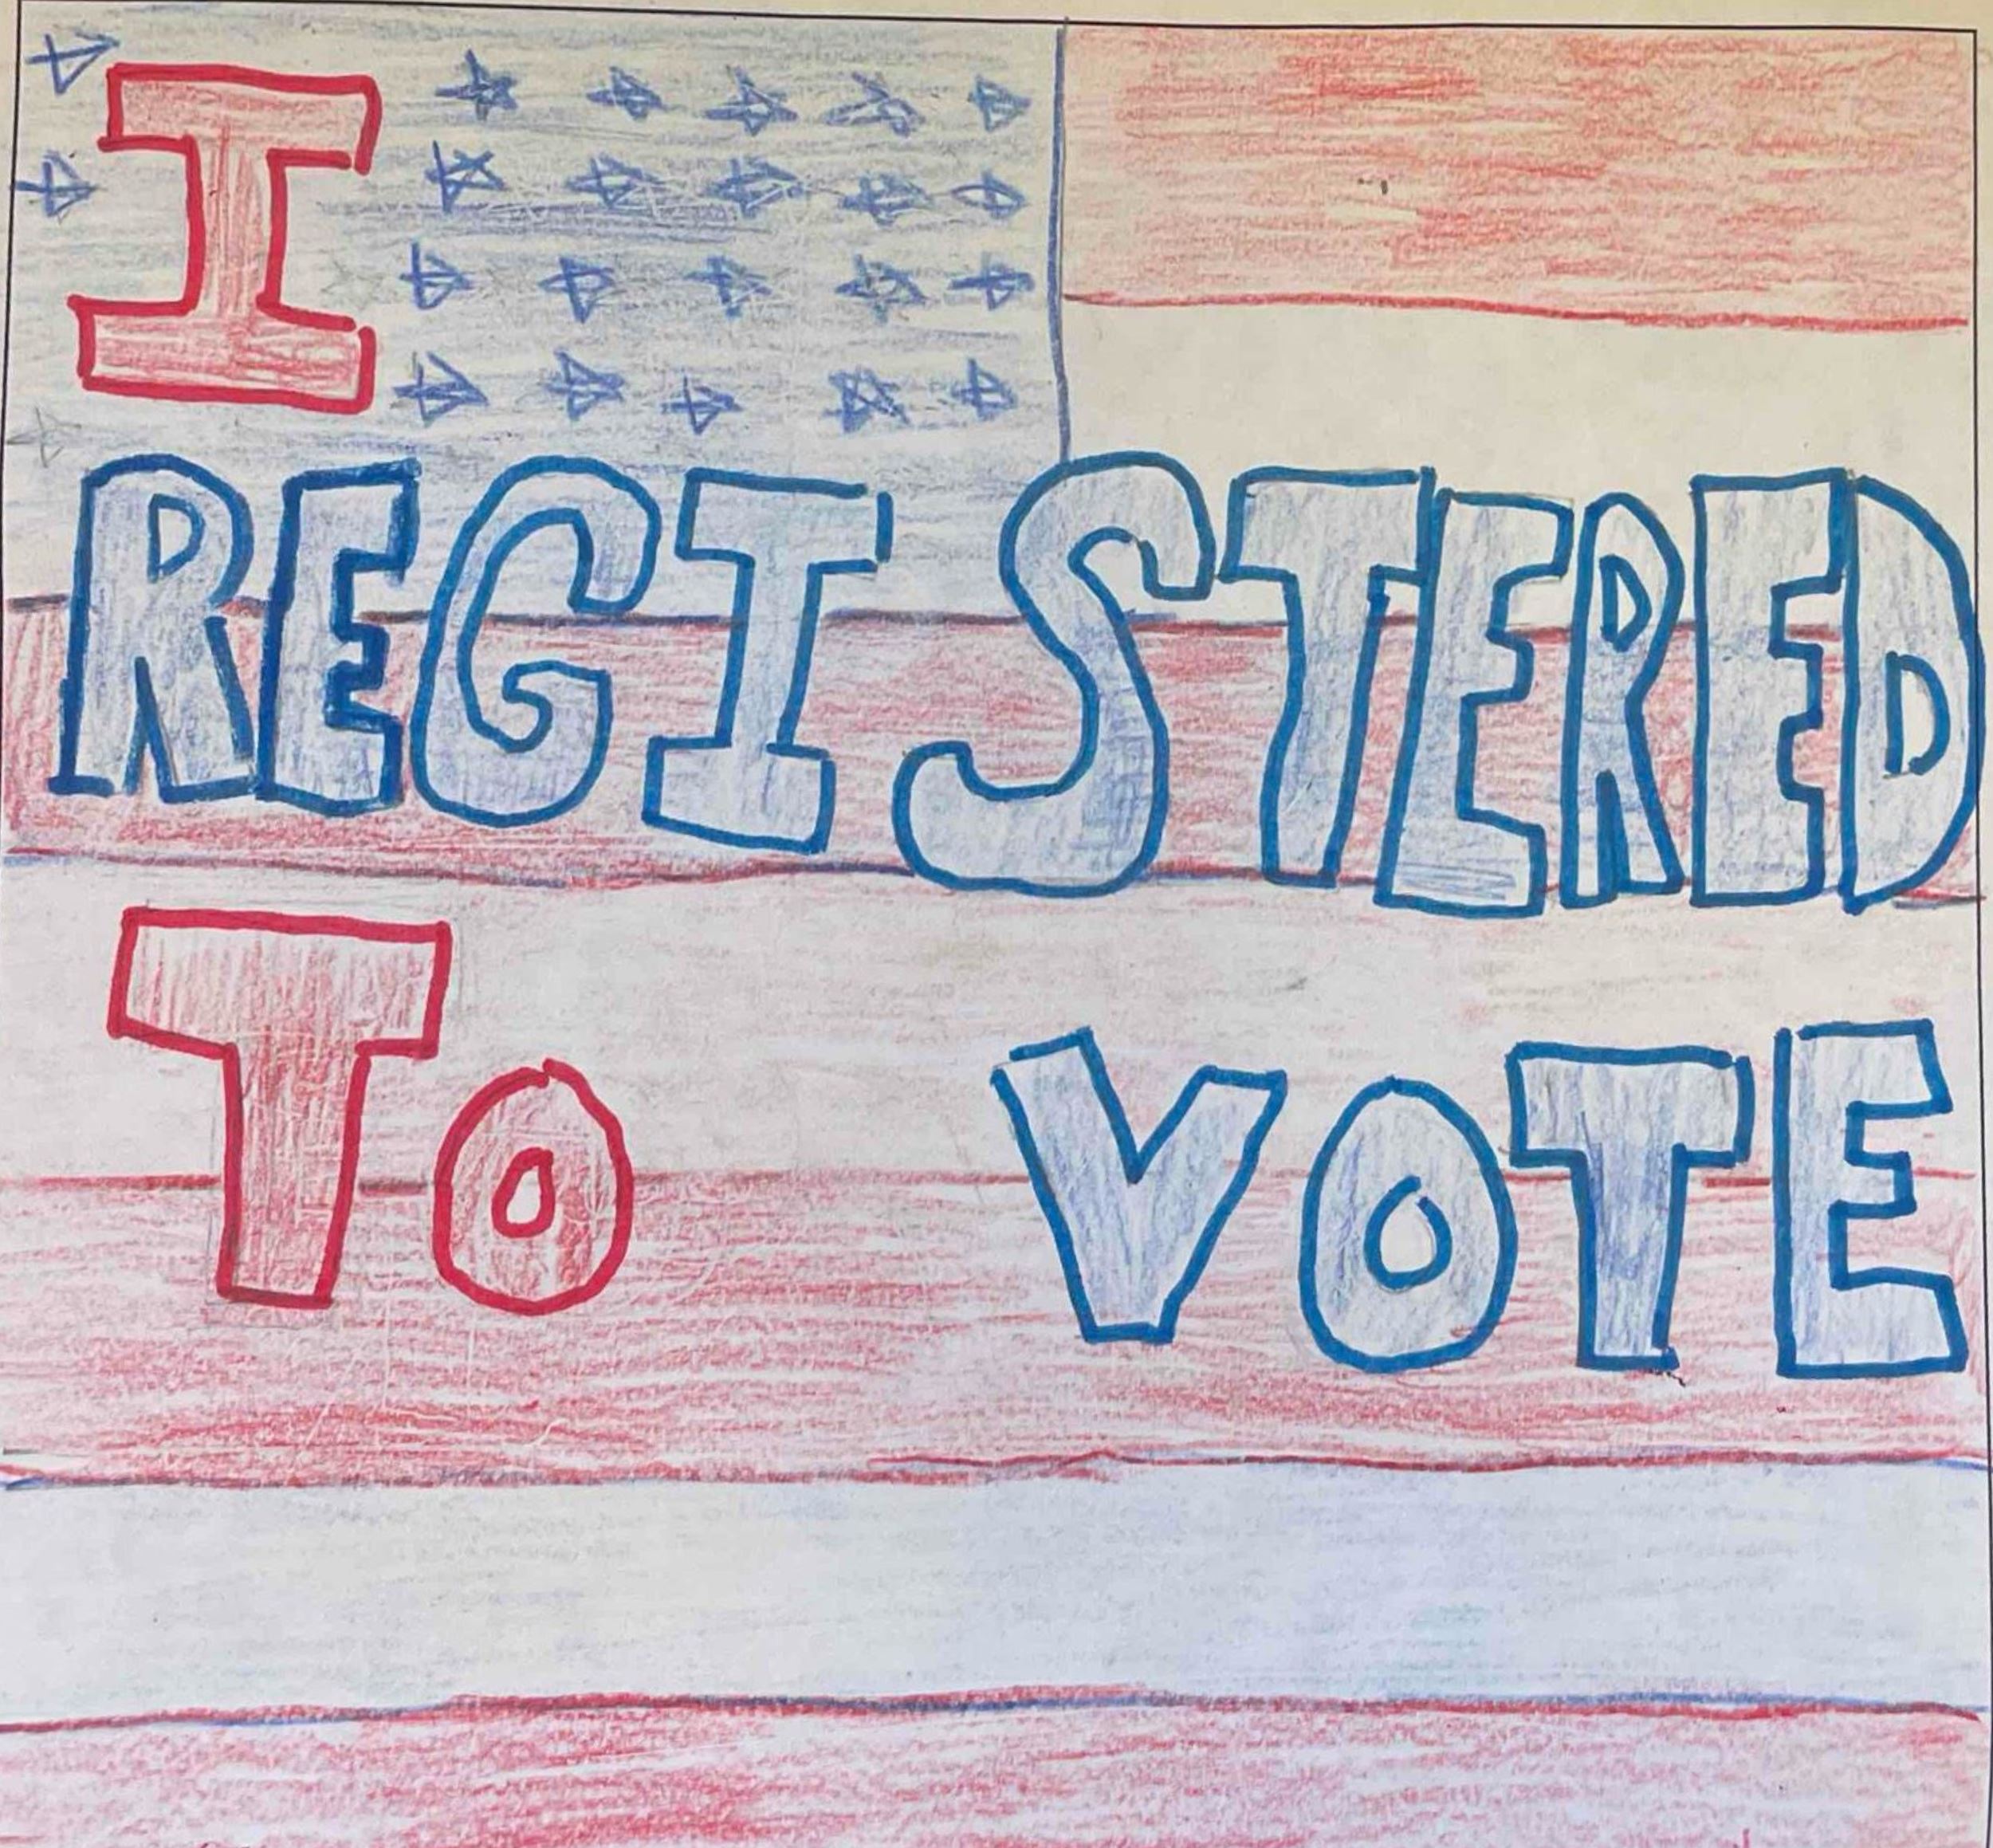 I
REGISTERED
To VOTE